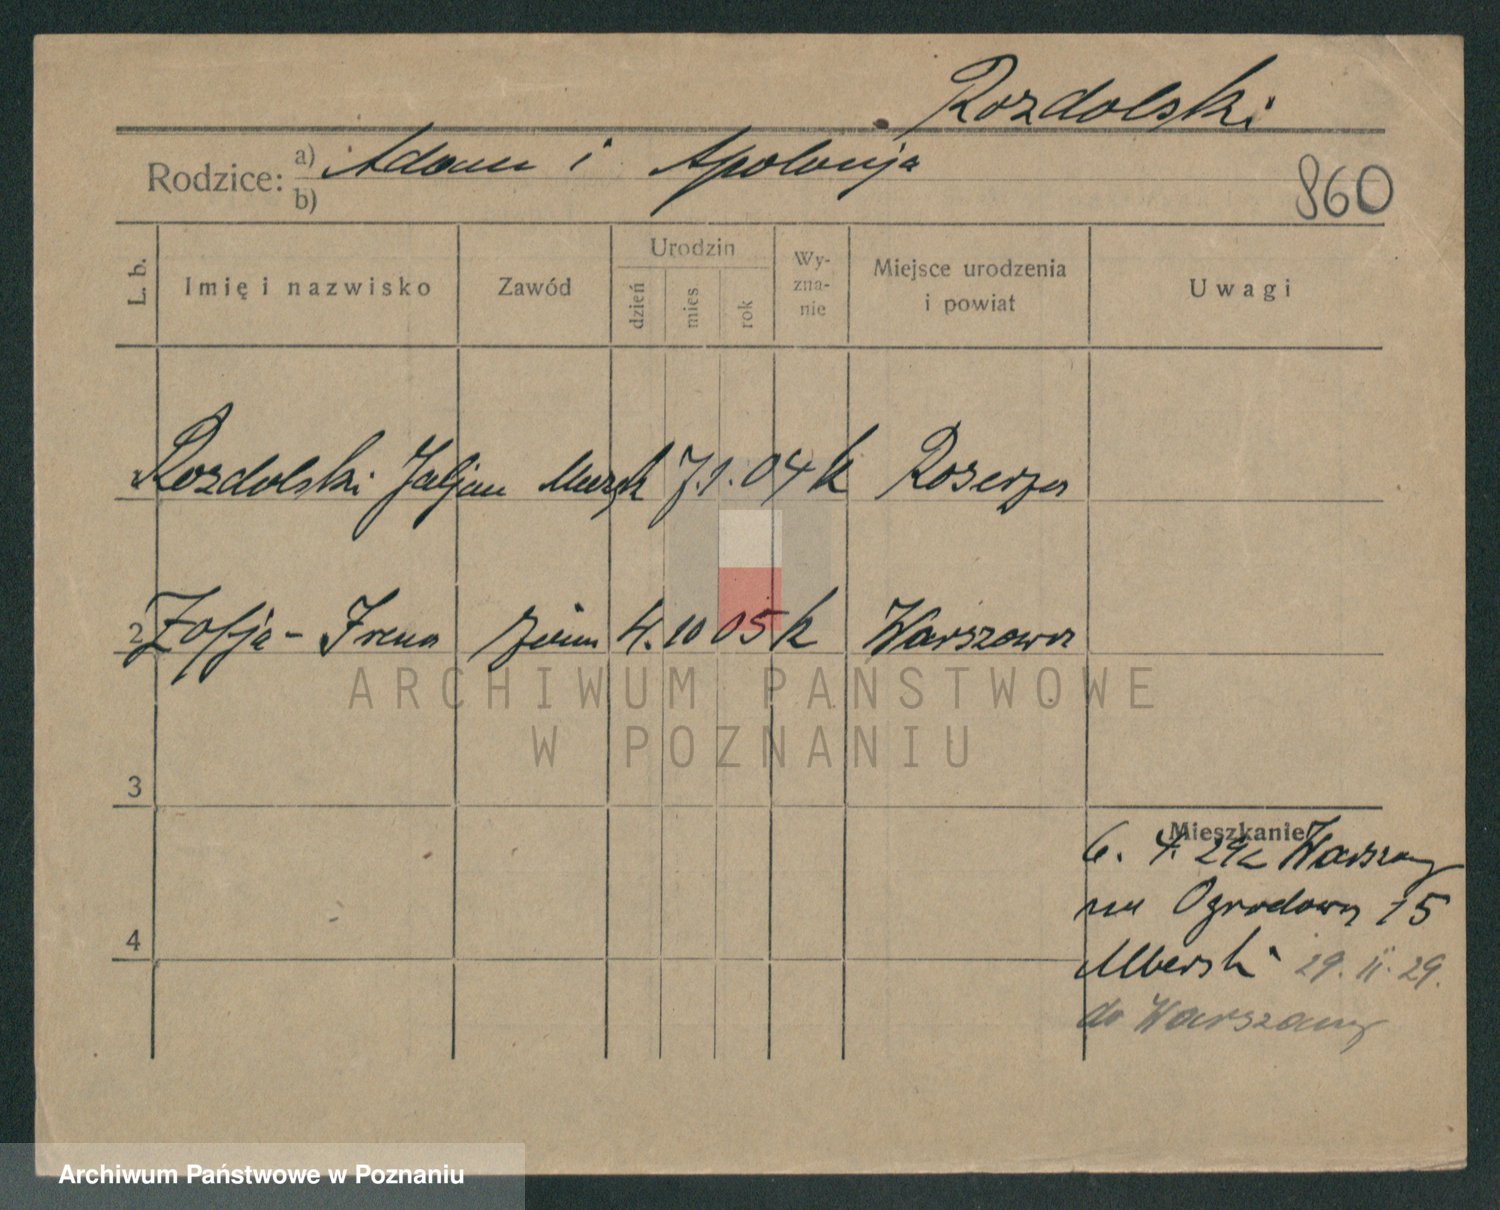 Rozdolski
Rodzice: a) Adam i Apolonja
b)
860
L. b. Imię i nazwisko Zawód Urodzin dzień mies rok Wyznanie Miejsce urodzenia i powiat Uwagi
Rozdolski Juljan Muzyk 7.1.04 k
2 Zofja - Irena 4.10 05 k Warszawa
3
Mieszkanie
6. 4. 29 z Warszawy
na Ogrodowy 15
4
29. II. 29.
do Warszawy
ARCHIWUM PAŃSTWOWE
W POZNANIU
Archiwum Państwowe w Poznaniu